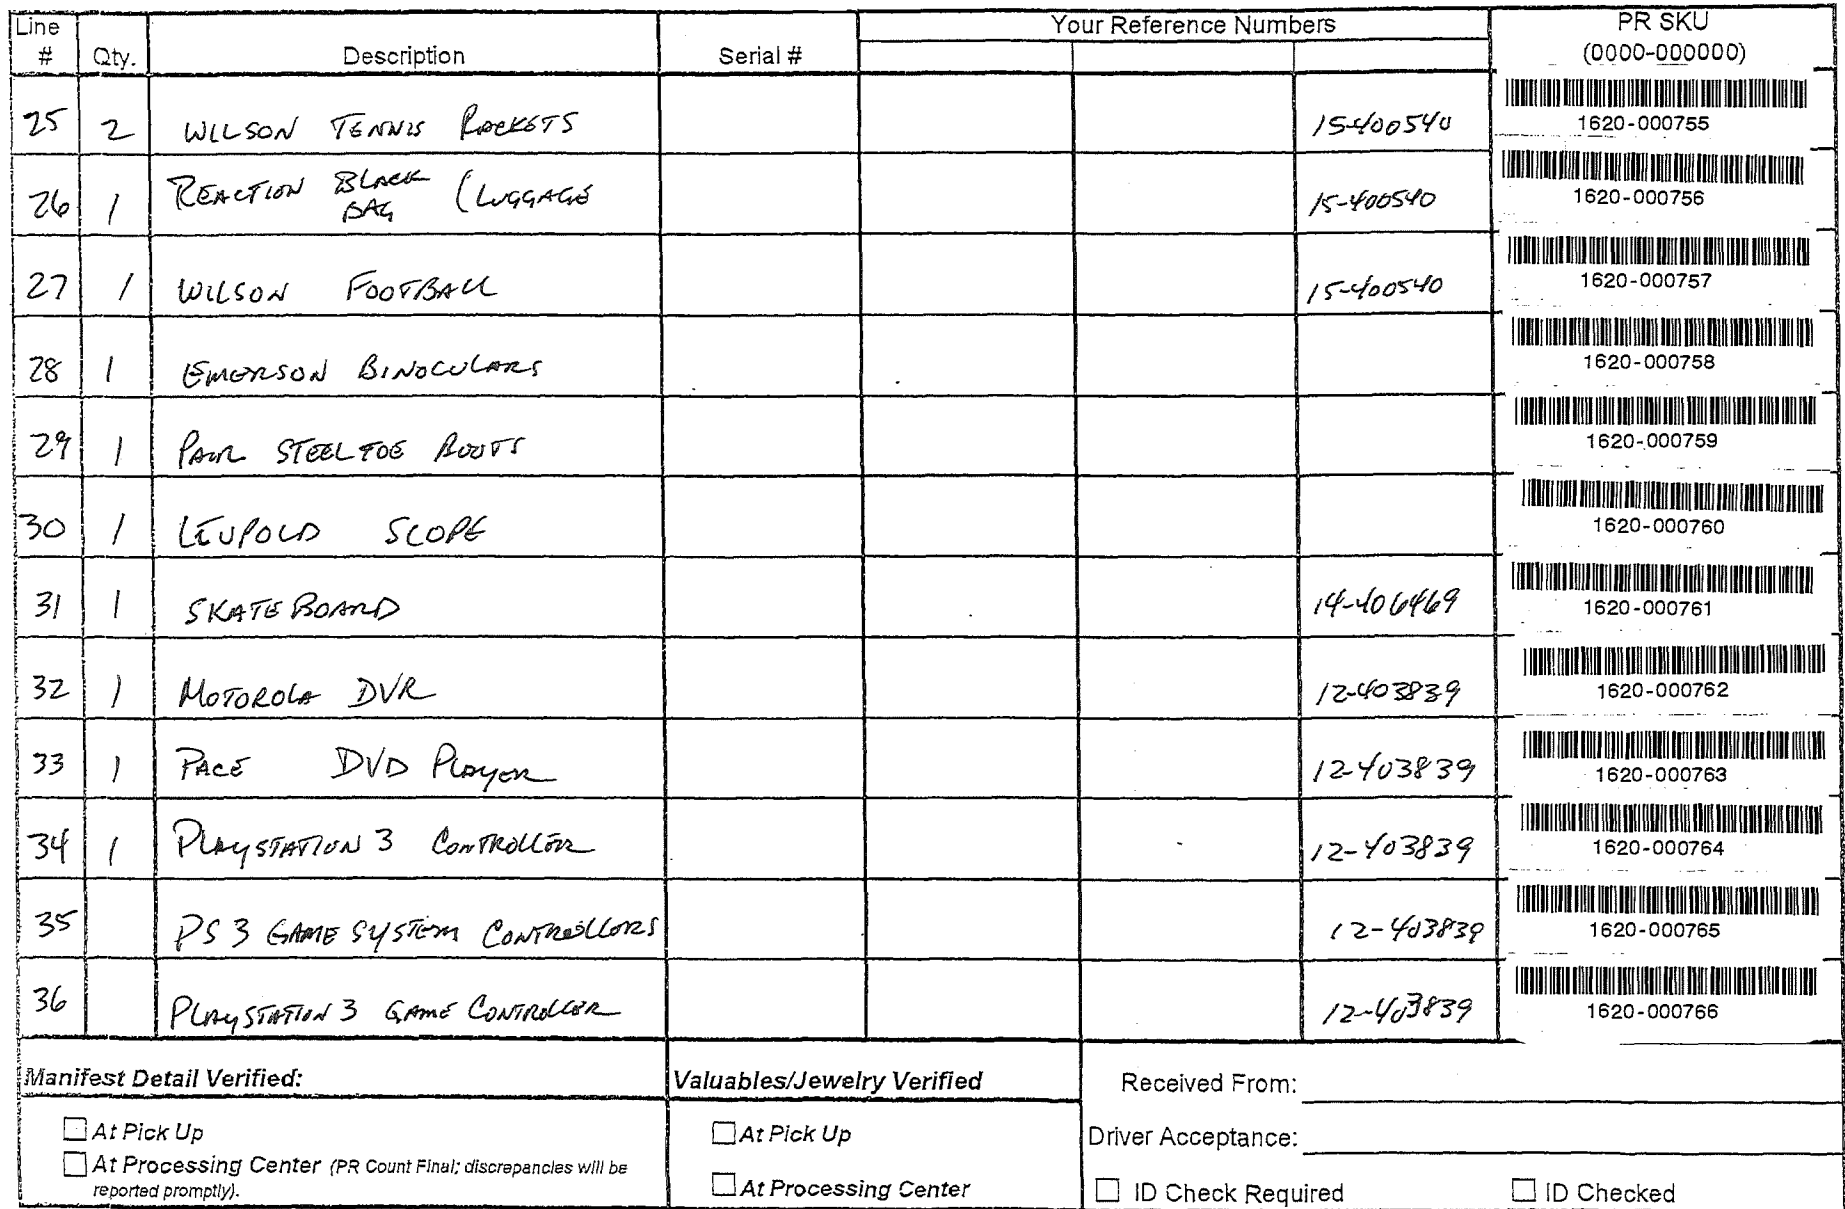 Line # Qty. Description Serial # Your Reference Numbers PR SKU (0000-000000)
25 2 WILSON TENNIS RACKETS 15-400540 1620-000755
26 1 REACTION BLACK BAG (LUGGAGE 15-400540 1620-000756
27 1 WILSON FOOTBALL 15-400540 1620-000757
28 1 EMERSON BINOCULARS 1620-000758
29 1 PAIR STEEL TOE BOOTS 1620-000759
30 1 LEUPOLD SCOPE 1620-000760
31 1 SKATE BOARD 14-406469 1620-000761
32 1 MOTOROLA DVR 12-403839 1620-000762
33 1 PACE DVD PLAYER 12-403839 1620-000763
34 1 PLAYSTATION 3 CONTROLLER 12-403839 1620-000764
35 PS 3 GAME SYSTEM CONTROLLORS 12-403839 1620-000765
36 PLAYSTATION 3 GAME CONTROLLER 12-403839 1620-000766
Manifest Detail Verified: Valuables/Jewelry Verified Received From:
At Pick Up At Pick Up Driver Acceptance:
At Processing Center (PR Count Final; discrepancies will be
reported promptly). At Processing Center ID Check Required ID Checked